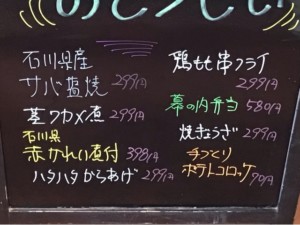 石川県産
サバ塩焼 299円
茎ワカメ煮 299円
石川県
赤かれい煮付 398円
ハタハタからあげ 299円
鶏もも串フライ
299円
幕の内弁当 580円
焼ぎょうざ 299円
手づくり
ポテトコロッケ 90円